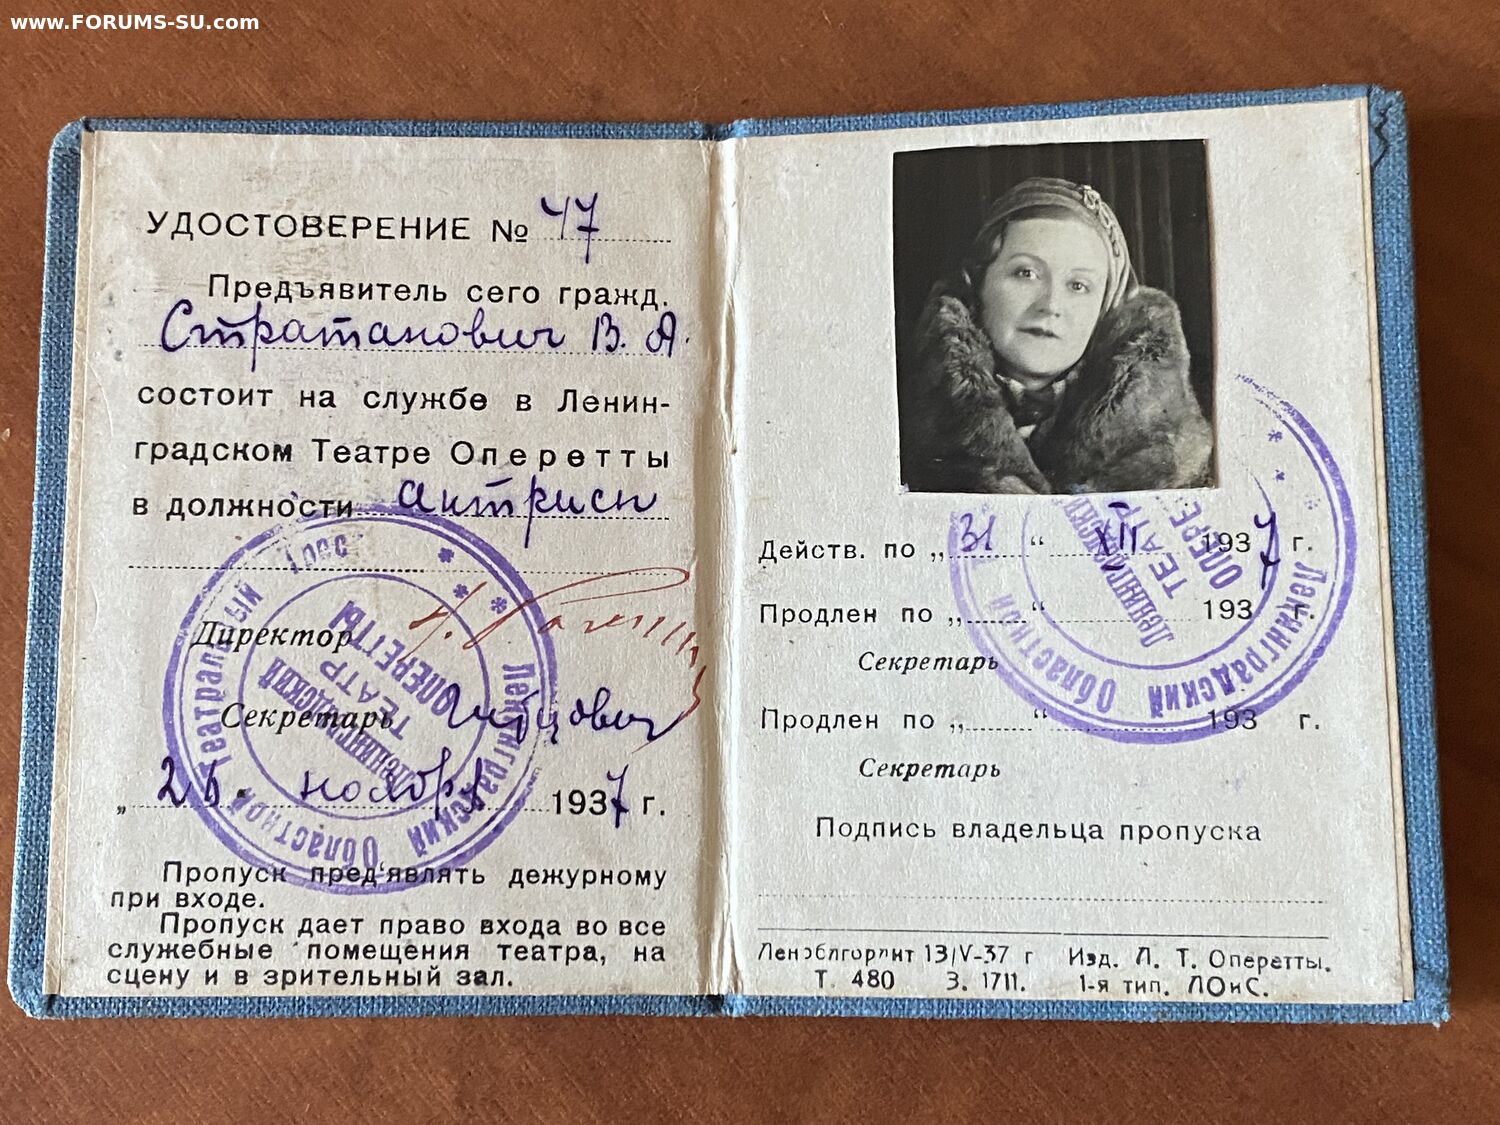 www.FORUMS-SU.com
УДОСТОВЕРЕНИЕ № 47
Предъявитель сего гражд.
Стратанович В. А.
состоит на службе в Ленин-
градском Театре Оперетты
в должности актрисы
Директор
Секретарь
„ 26. ноября 1937 г.
Пропуск пред'являть дежурному
при входе.
Пропуск дает право входа во все
служебные помещения театра, на
сцену и в зрительный зал.
Действ. по „31“ XII 1937 г.
Продлен по „ “ 193 г.
Секретарь
Продлен по „ “ 193 г.
Секретарь
Подпись владельца пропуска
Леноблгорлит 13/V-37 г Изд. Л. Т. Оперетты.
Т. 480 З. 1711. 1-я тип. ЛОиС.
Ленинградский Областной Театральный
ЛЕНИНГРАДСКИЙ
ТЕАТР
ОПЕРЕТТЫ
Ленинградский Областной
ЛЕНИНГРАДСКИЙ
ТЕАТР
ОПЕРЕ